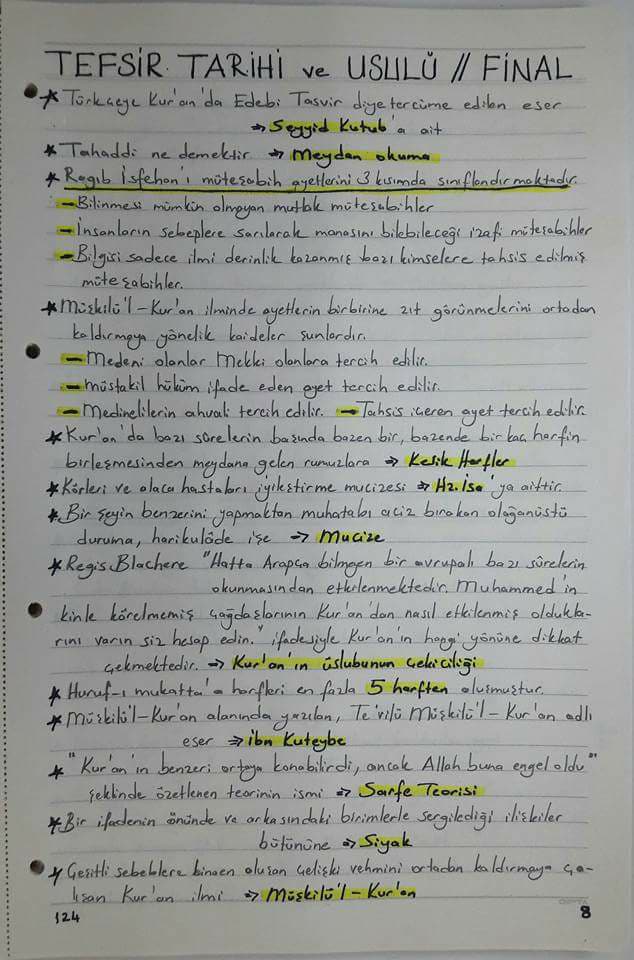 TEFSİR TARİHİ ve USULÜ // FİNAL
* Türkçeye Kur'an'da Edebi Tasvir diye tercüme edilen eser
⇒ Seyyid Kutub'a ait
* Tahaddi ne demektir ⇒ Meydan okuma
* Ragıb İsfehan'ı müteşabih ayetlerini 3 kısımda sınıflandırmaktadır.
- Bilinmesi mümkün olmayan mutlak müteşabihler
- İnsanların sebeplere sarılarak manasını bilebileceği izafi müteşabihler
- Bilgisi sadece ilmi derinlik kazanmış bazı kimselere tahsis edilmiş
müteşabihler.
* Müşkilü'l-Kur'an ilminde ayetlerin birbirine zıt görünmelerini ortadan
kaldırmaya yönelik kaideler şunlardır.
- Medeni olanlar Mekki olanlara tercih edilir.
- müstakil hüküm ifade eden ayet tercih edilir.
- Medinelilerin ahvali tercih edilir. - Tahsis içeren ayet tercih edilir.
* Kur'an'da bazı sûrelerin başında bazen bir, bazende bir kaç harfin
birleşmesinden meydana gelen rumuzlara ⇒ Kesik Harfler
* Körleri ve alaca hastaları iyileştirme mucizesi ⇒ Hz. İsa'ya aittir.
* Bir şeyin benzerini yapmaktan muhatabı aciz bırakan olağanüstü
duruma, harikulâde işe ⇒ Mucize
* Regis Blachere "Hatta Arapça bilmeyen bir avrupalı bazı sûrelerin
okunmasından etkilenmektedir. Muhammed'in
kinle körelmemiş çağdaşlarının Kur'an'dan nasıl etkilenmiş oldukla-
rını varın siz hesap edin." ifadesiyle Kur'an'ın hangi yönüne dikkat
çekmektedir. ⇒ Kur'an'ın üslubunun çekiciliği
* Huruf-ı mukatta'a harfleri en fazla 5 harften oluşmuştur.
* Müşkilü'l-Kur'an alanında yazılan, Te'vilü Müşkilü'l-Kur'an adlı
eser ⇒ ibn Kuteybe
* "Kur'an'ın benzeri ortaya konabilirdi, ancak Allah buna engel oldu"
şeklinde özetlenen teorinin ismi ⇒ Sarfe Teorisi
* Bir ifadenin önünde ve arkasındaki birimlerle sergilediği ilişkiler
bütününe ⇒ Siyak
* Çeşitli sebeblere binaen oluşan çelişki vehmini ortadan kaldırmaya ça-
lışan Kur'an ilmi ⇒ Müşkilü'l-Kur'an
124 8